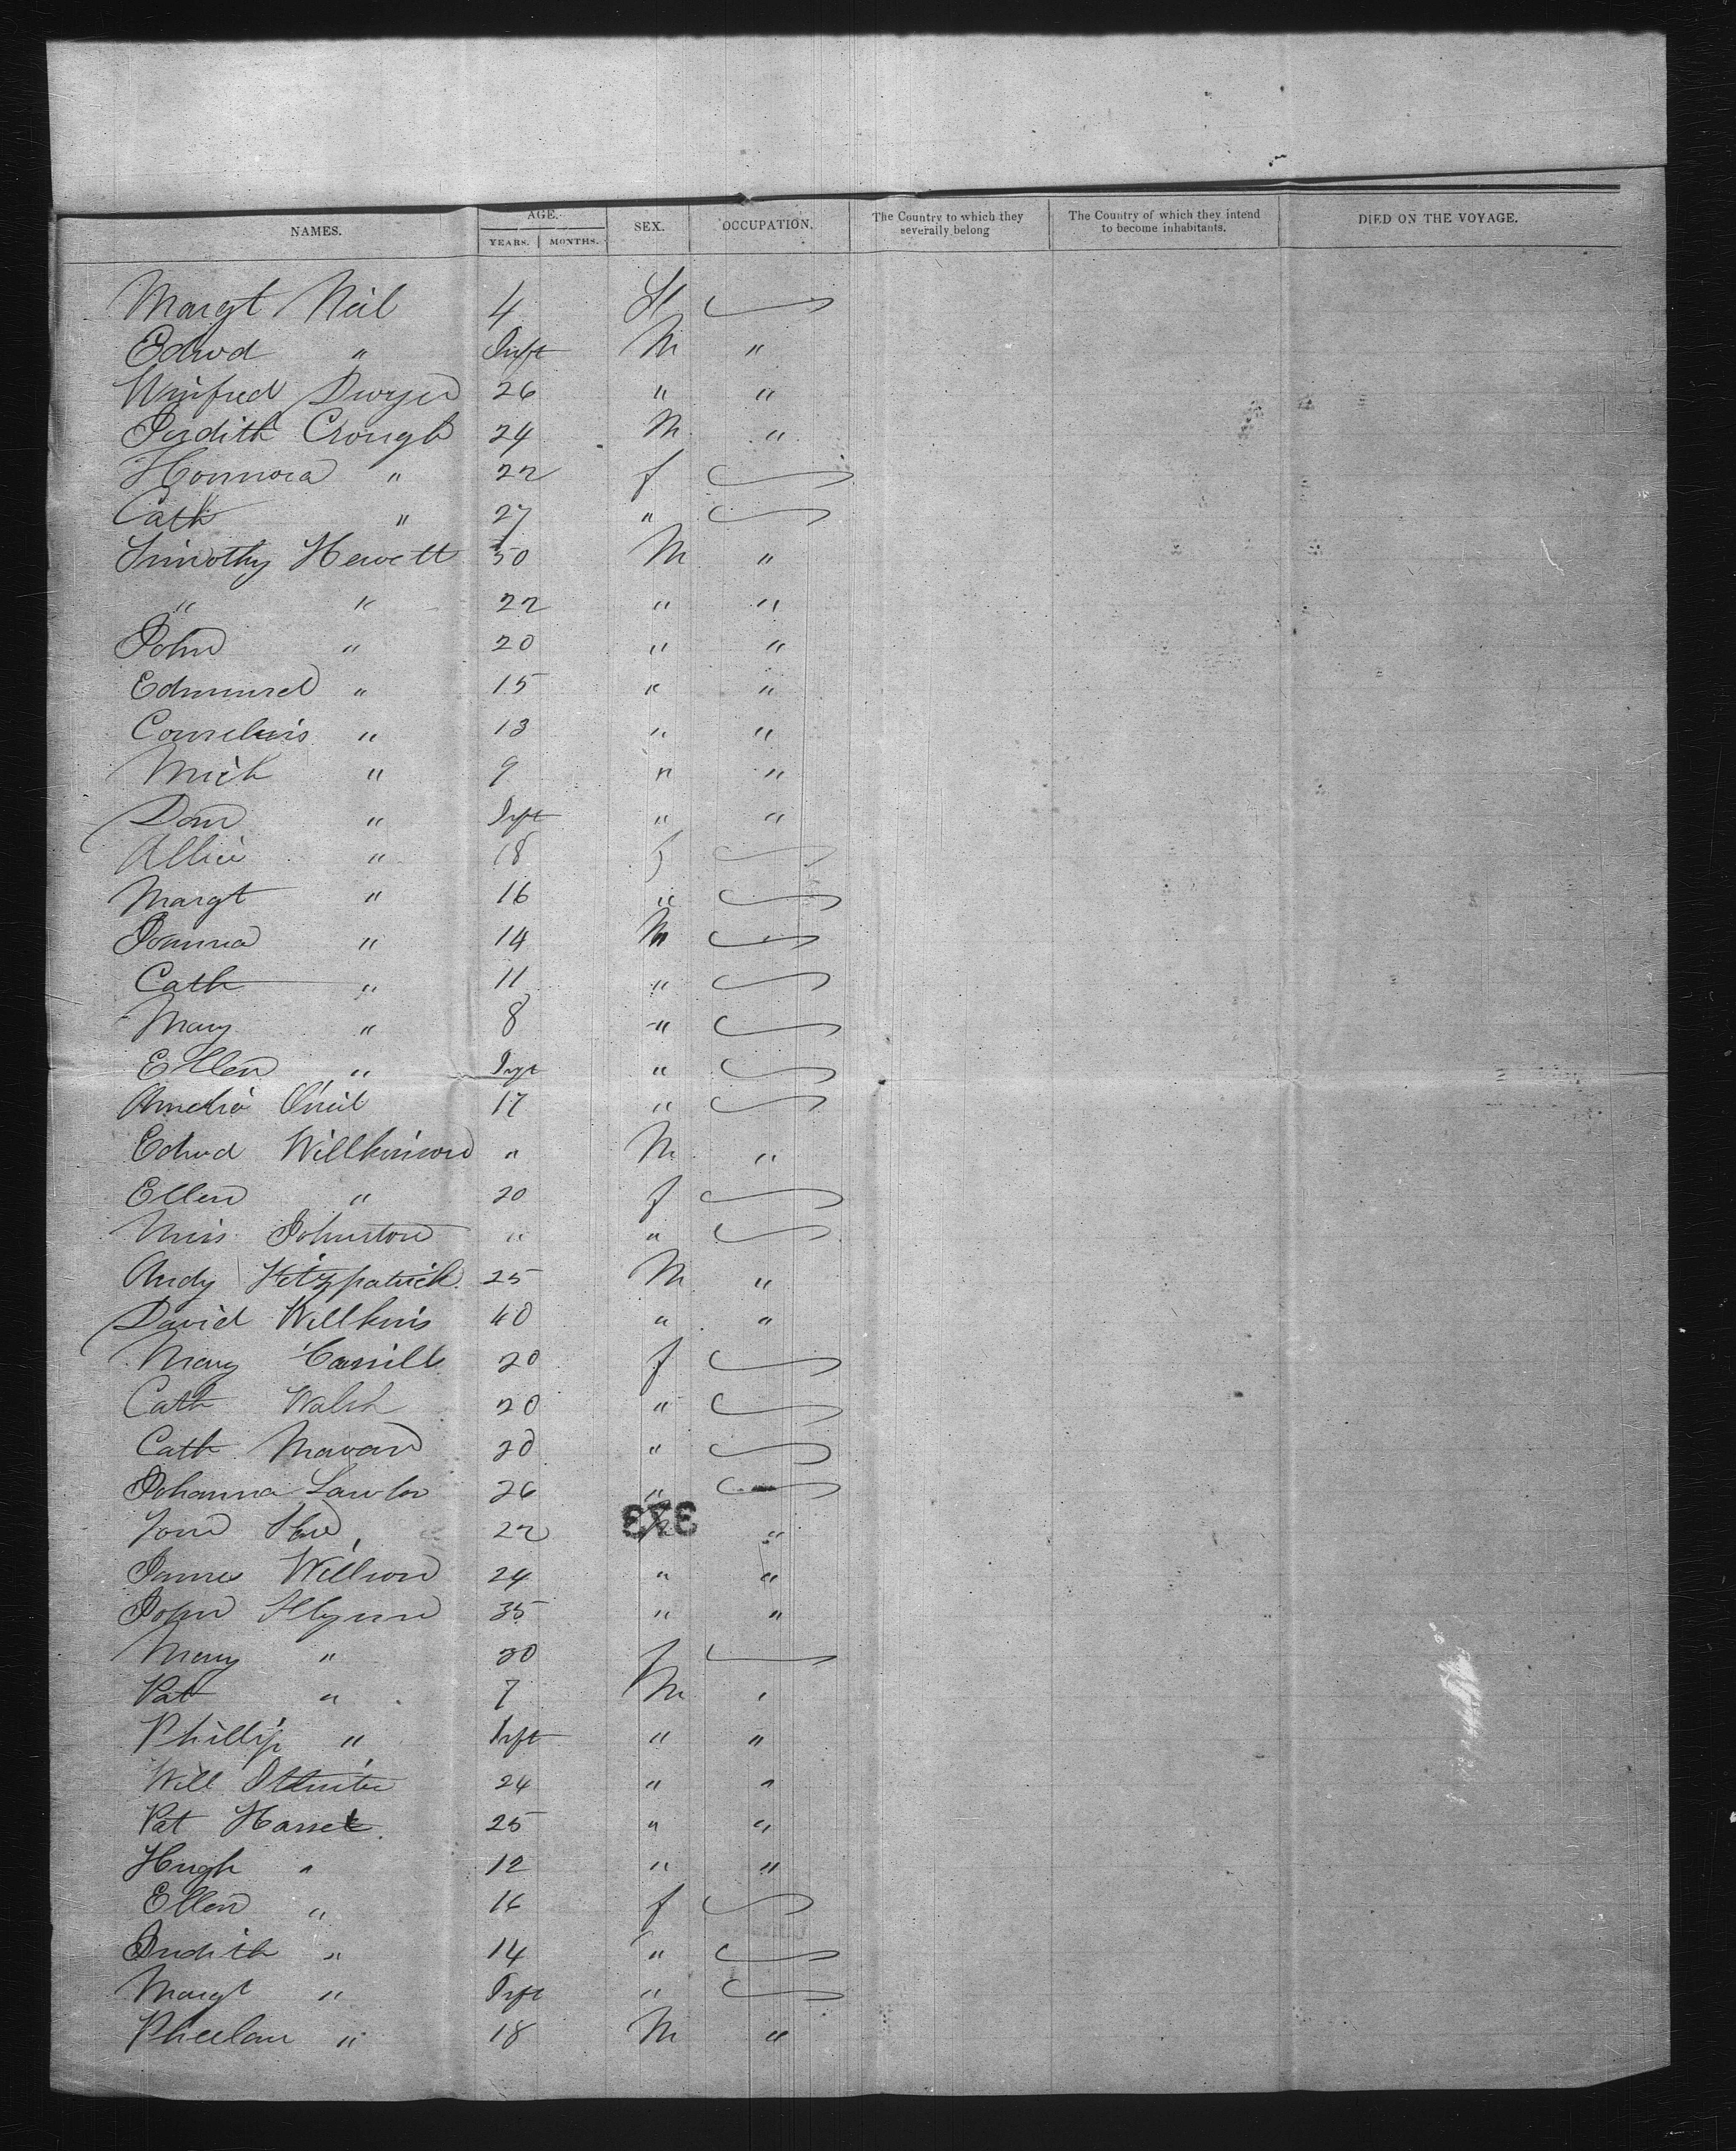 NAMES. AGE. YEARS. MONTHS. SEX. OCCUPATION. The Country to which they severally belong The Country of which they intend to become inhabitants. DIED ON THE VOYAGE.
Margt Neil 4
Edwd " Inft M "
Winifred Dwyer 26 " "
Judith Crough 24 M "
Honnora " 22 f
Cath " 27 "
Timothy Hewett 50 M "
" " 22 " "
John " 20 " "
Edmund " 15 " "
Cornelius " 13 " "
Mich " 9 " "
Dan " Inft " "
Allice " 18 f
Margt " 16 "
Joanna " 14 M
Cath " 11 "
Mary " 8 "
Ellen " Inft "
Amelia Oneil 17 "
Edwd Willkinson " M "
Ellen " 20 f
Miss Johnston " "
Andy Fitzpatrick 25 M "
David Willkins 40 " "
Mary 20 f
Cath Walsh 20 "
Cath 20 "
Johanna Lawlor 26 "
22 373 "
James Willson 24 " "
John Flynn 35 " "
Mary " 30 f
Pat " 7 M "
Phillip " Inft " "
Will 24 " "
Pat Hasset 25 " "
Hugh " 12 " "
Ellen " 16 f
Judith " 14 "
Margt " Inft "
Pheelan " 18 M "